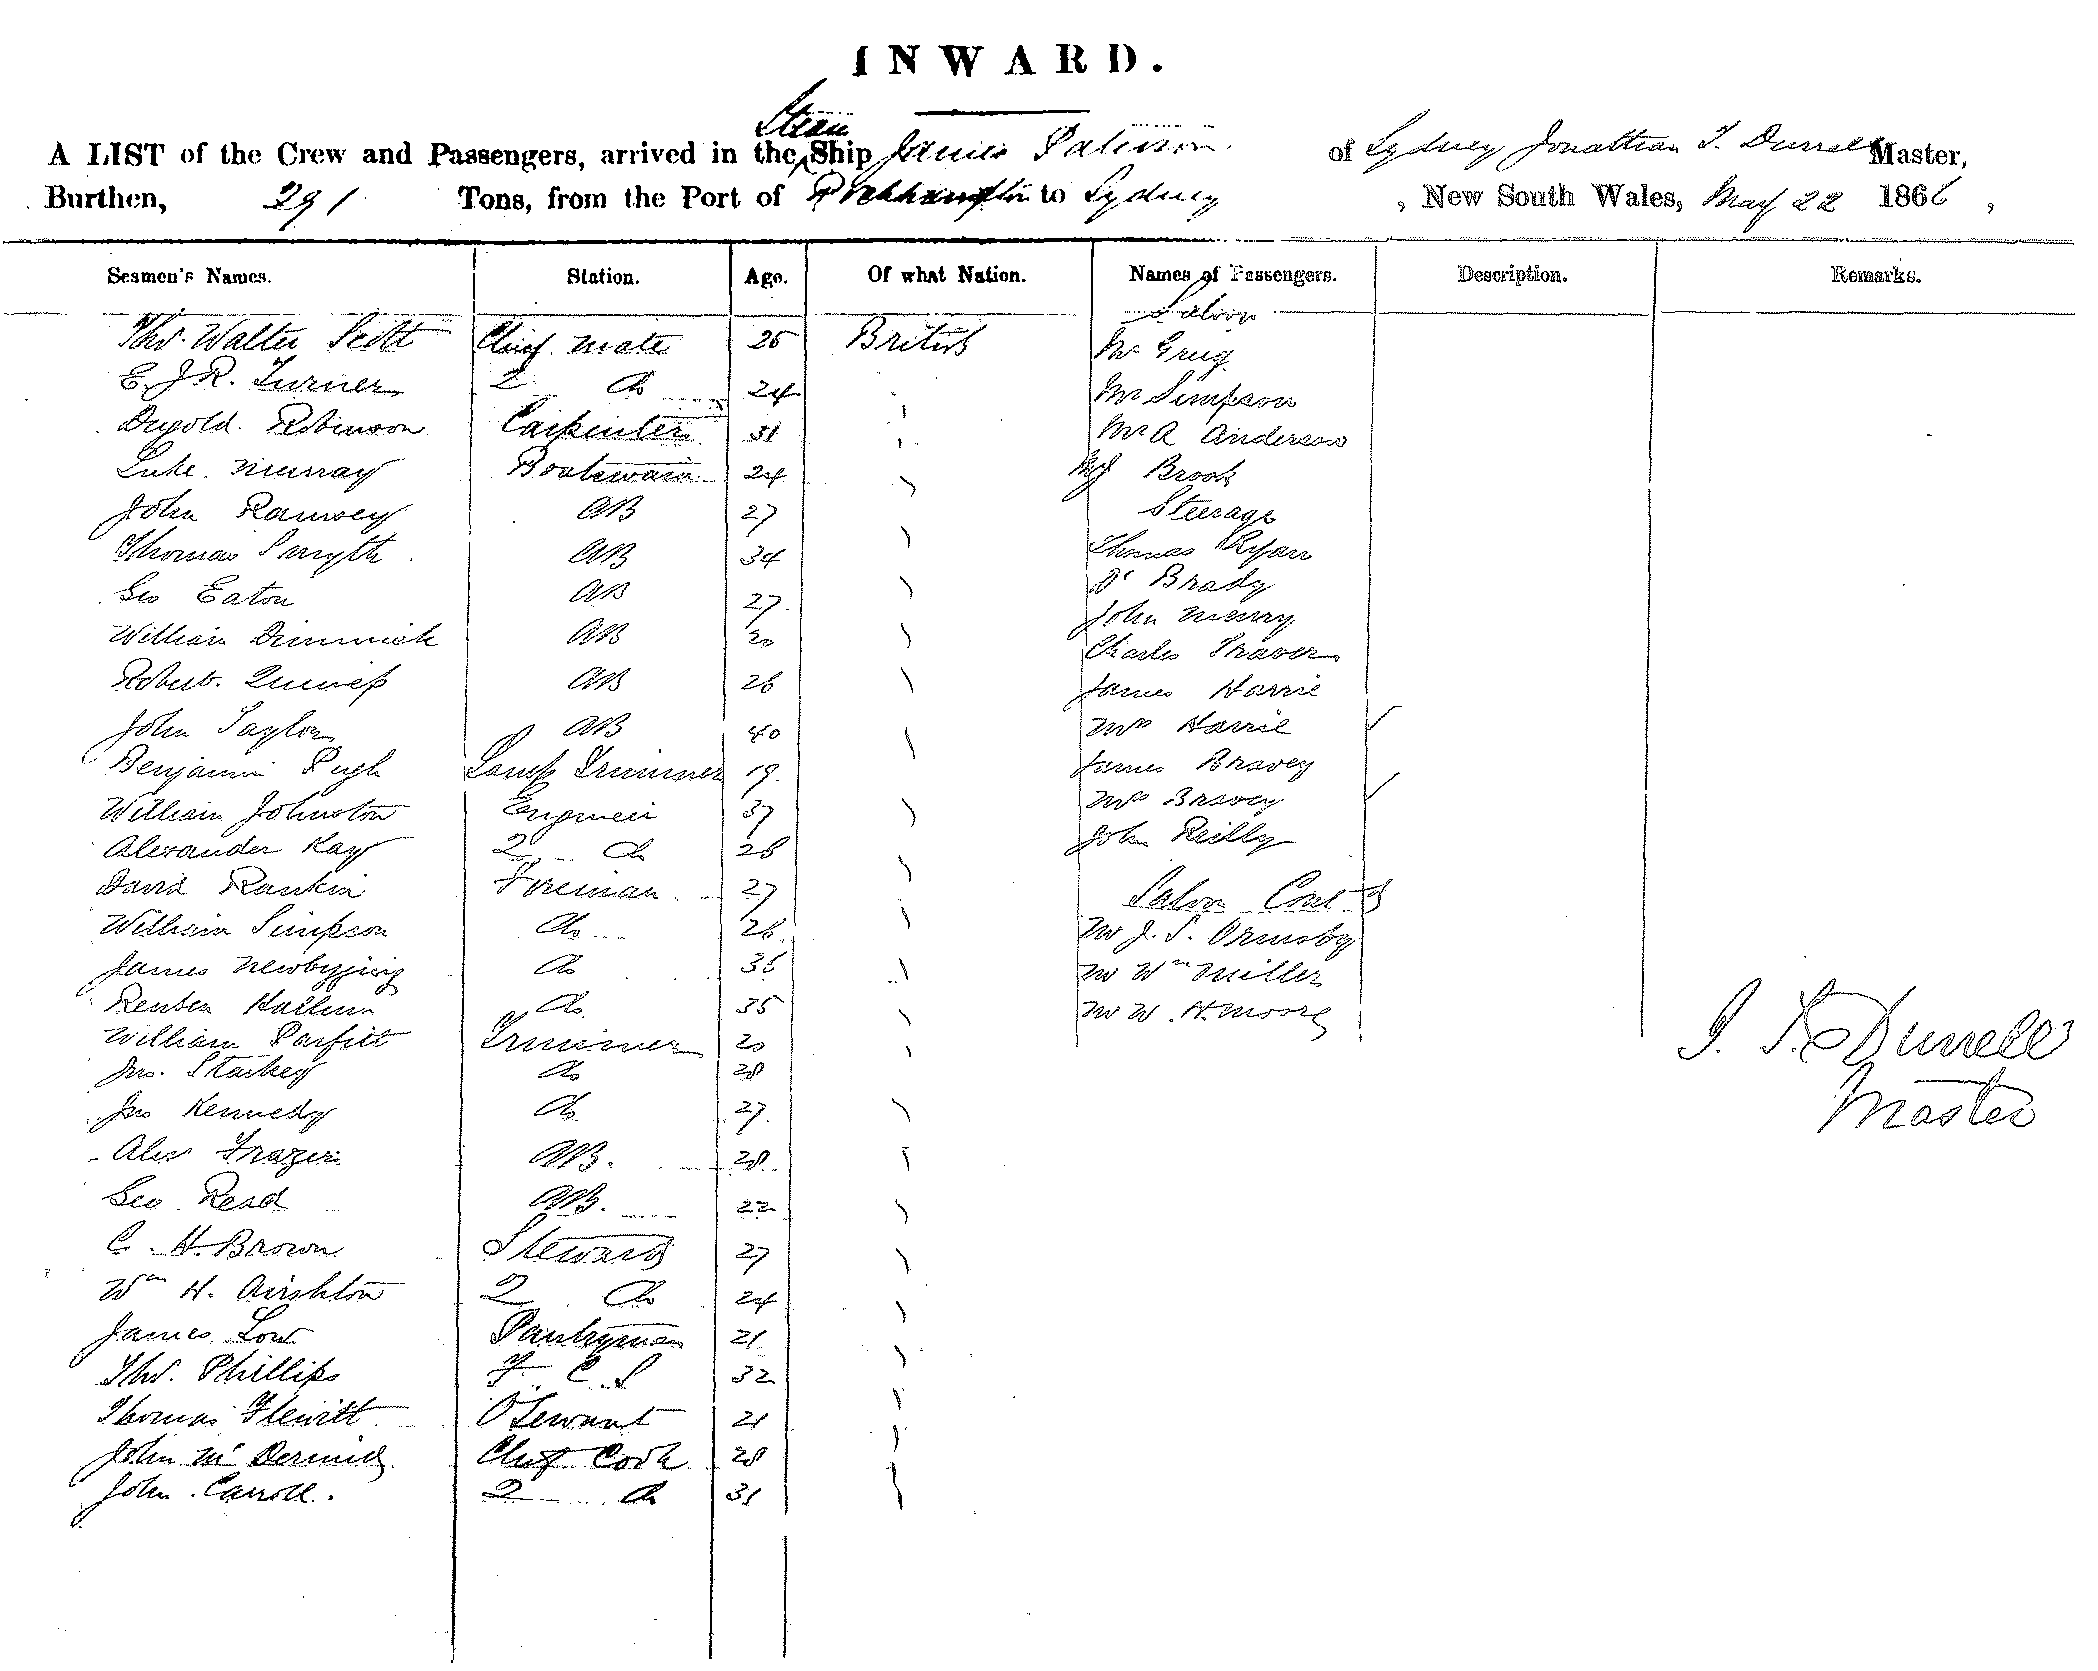 INWARD.
Steam
A LIST of the Crew and Passengers, arrived in the Ship James Paterson of Sydney Jonathan T. Durrell Master,
Burthen, 291 Tons, from the Port of Rockhampton to Sydney, New South Wales, May 22 1866,
Seamen's Names. Station. Age. Of what Nation. Names of Passengers. Description. Remarks.
Saloon
Tho. Walter Scott Chief Mate 25 British Mr Greig
E. J R. Turner 2 Do 24 Mr Simpson
Robinson Carpenter 31 Mr A Anderson
Luke Murray Boatswain 24 Brook
John Ramsey AB 27 Steerage
Thomas Smyth AB 34 Thomas Ryan
Geo Eaton AB 27 Brady
William Dimmick AB 20 John
Robert AB 26 Charles Travers
John Taylor AB 40 James Harrie
Benjamin Pugh Lamp Trimmer 19 Mrs Harrie
William Johnston Engineer 37 James Bravey
Alexander Kay 2 Do 28 Mrs Bravey
David Rankin Fireman 27 John Reilly
William Simpson Do 26 Saloon Contd
James Do 36 Mr J. S. Ormsby
Reuben Hallum Do 35 Mr Wm Miller
William Parfitt Trimmer 20 Mr W. H. Moore
Jno. Starkey Do 28
Jno Kennedy Do 27
Alex Frazer AB. 28
Geo Read AB. 22
C H. Brown Steward 27
Wm H. Airshton 2 Do 24
James Low Pantryman 21
Tho. Phillips F. C. S 32
Thomas Flewitt 21
John Mc Dermid Chief Cook 28
John Carroll. 2 Do 31
J. T. Durrell
Master